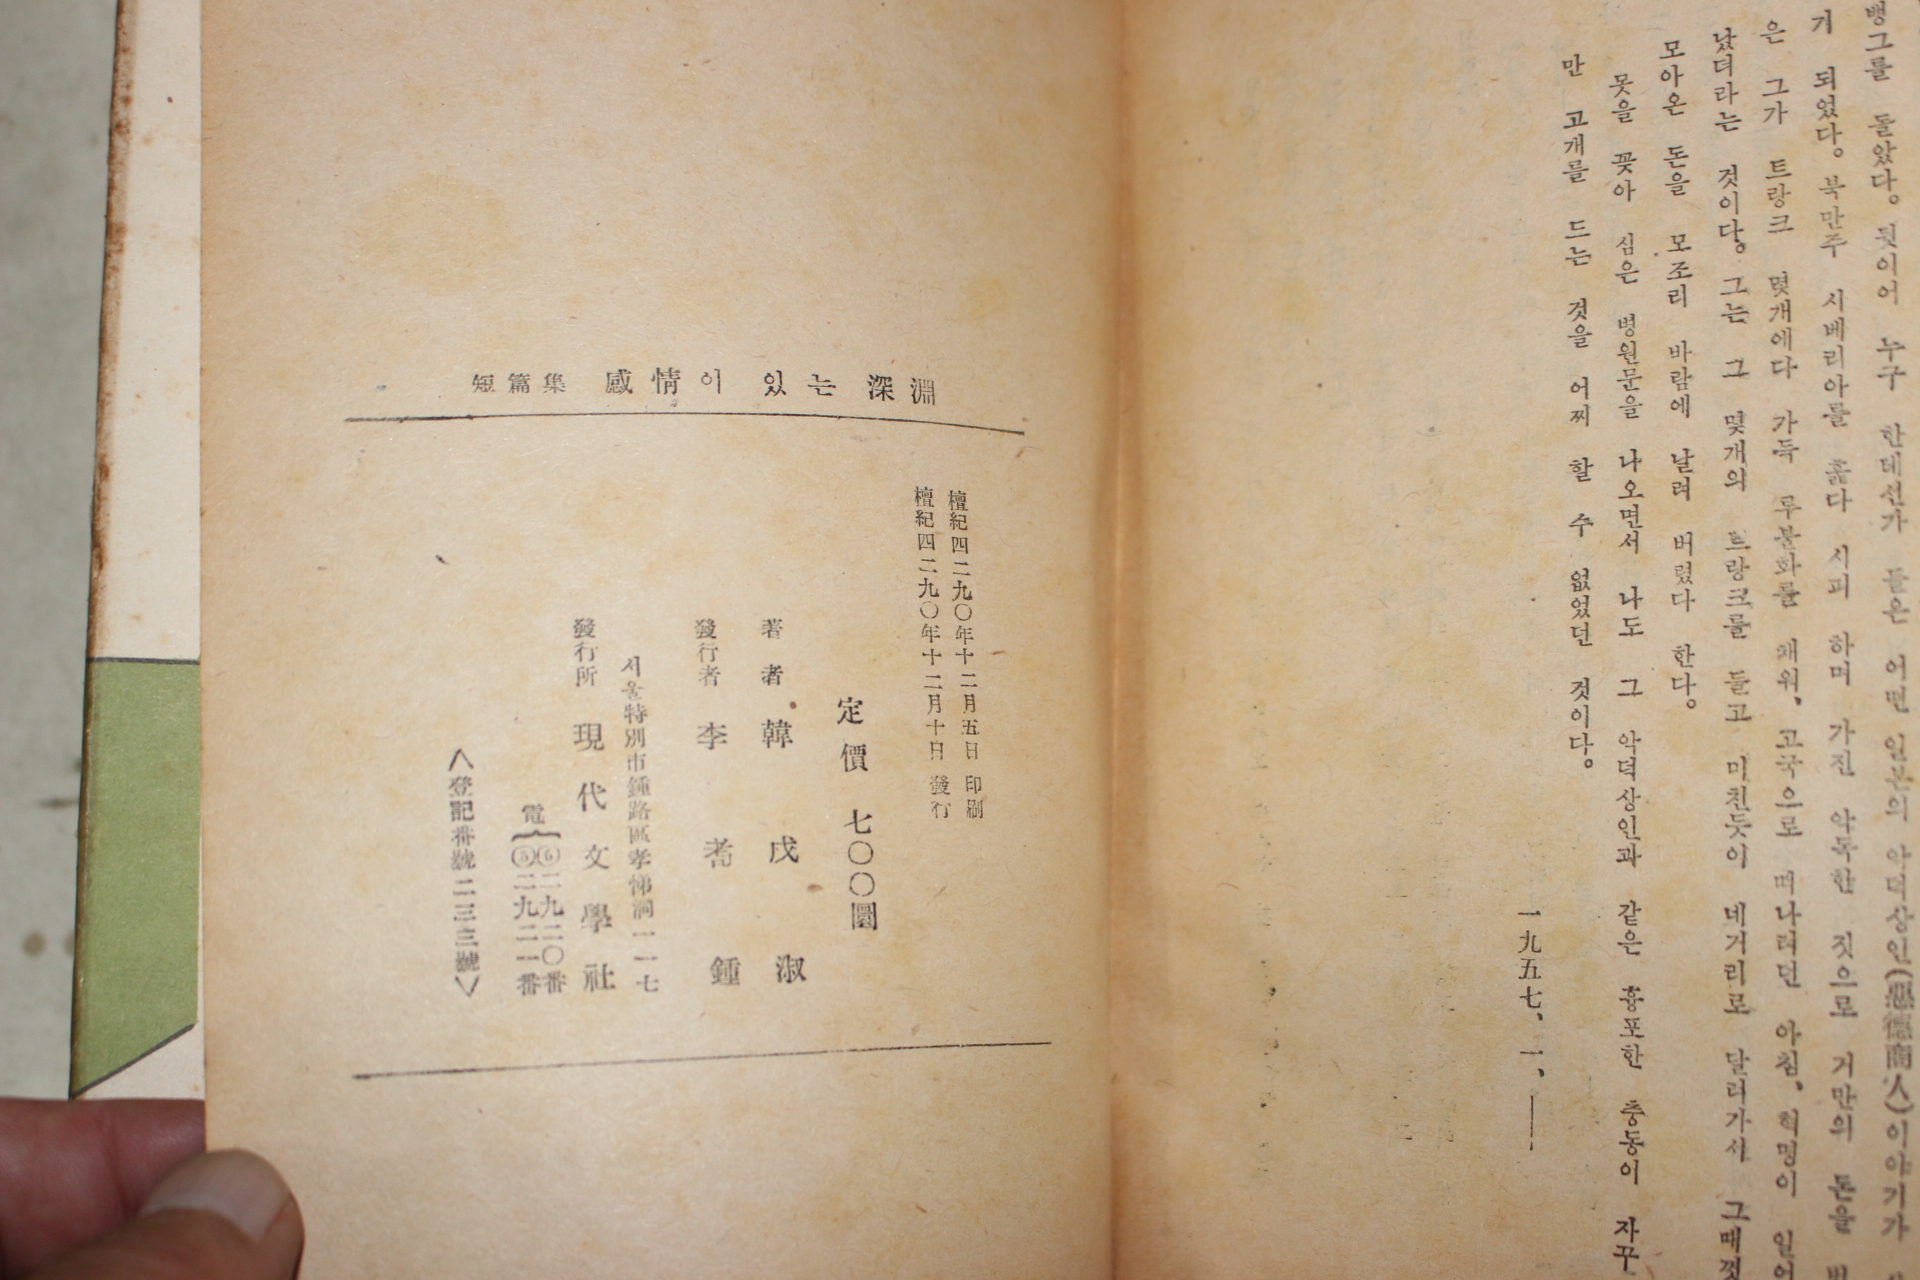 뱅그를 돌았다。 뒷이어 누구 한데선가 들은 어떤 일본의 악덕상인(惡德商人)이야기가
기 되었다。 북만주 시베리아를 훑다 시피 하며 가진 악독한 짓으로 거만의 돈을
은 그가 트랑크 몇개에다 가득 루불화를 채워、고국으로 떠나려던 아침、혁명이 일어
났더라는 것이다。 그는 그 몇개의 트랑크를 들고 미친듯이 네거리로 달려가서 그때껏
모아온 돈을 모조리 바람에 날려 버렸다 한다。
못을 꽂아 심은 병원문을 나오면서 나도 그 악덕상인과 같은 흉포한 충동이 자꾸
만 고개를 드는 것을 어찌 할 수 없었던 것이다。
一九五七、一、—
短篇集 感情이 있는 深淵
檀紀四二九〇年十二月五日 印刷
檀紀四二九〇年十二月十日 發行
定價 七〇〇圜
著者 韓戊淑
發行者 李 鍾
서울特別市鍾路區孝悌洞一一七
發行所 現代文學社
電 ⑤二九二〇番
⑤二九二一番
<登記番號二三三號>